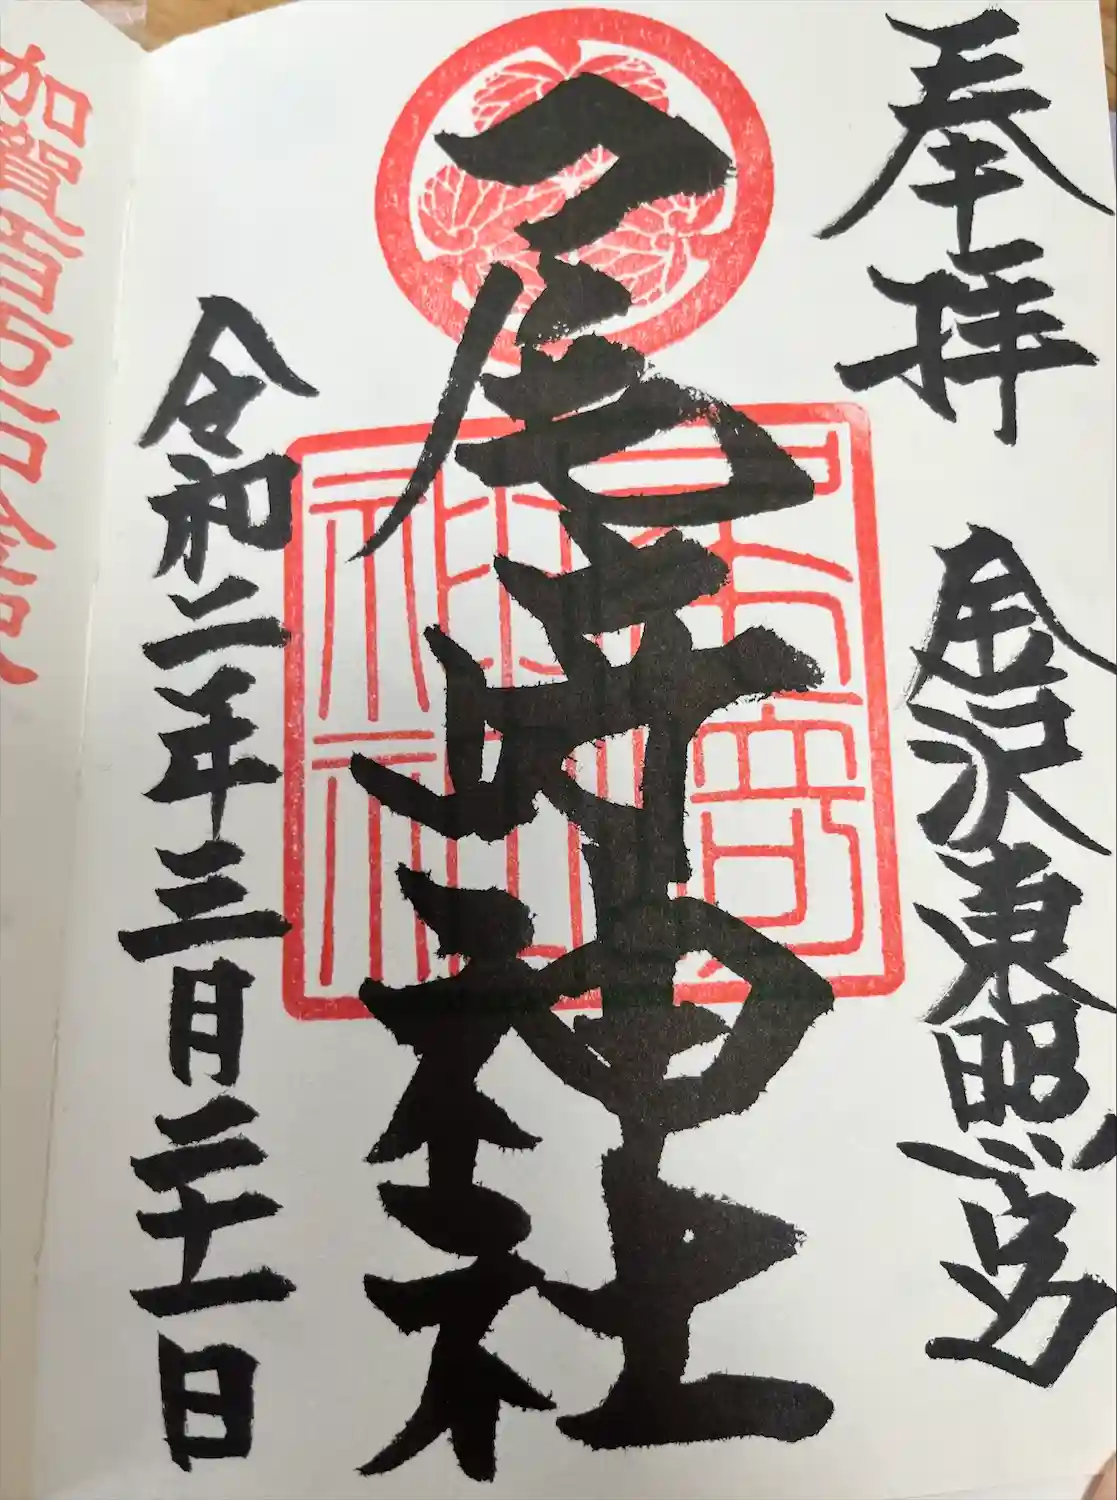 奉拝
金沢東照宮
尾﨑神社
尾㟢神社
令和二年三月二十一日
加賀百万石金沢